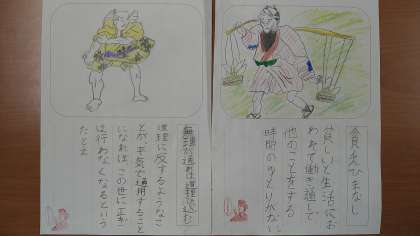 貧乏ひまなし
貧しいと生活にお
われて働き通しで
他のことをする
時間のゆとりがない
無理が通れば道理引っ込む
道理に反するようなこ
とが、平気で通用すること
になれば、この世に正ぎ
は行わなくなるという
たとえ